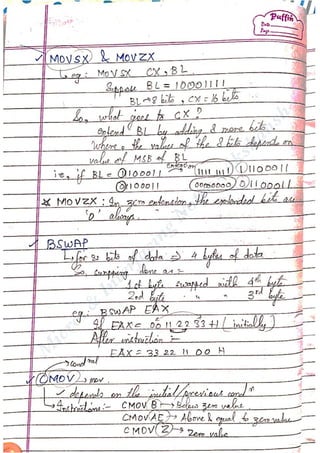 Puffin
Date
Page
✓ MOVSX & MOVZX
↳ eg: MOVSX CX, BL
Suppose BL = 10001111
BL → 8 bits, CX = 16 bits
So, what goes to CX?
extend BL by adding 8 more bits.
Where, the values of the 8 bits depends on
value of MSB of BL
extension
ie, if BL = 11100011 11111111 11100011
01100011 00000000 01100011
* MOVZX: In zero extension, the extended bits are
'0' always.
✓ BSWAP
↳ for 32 bits of data ⇒ 4 bytes of data
So, swapping done as :-
1st byte swapped with 4th byte
2nd byte " " 3rd byte
eg: BSWAP EAX
If EAX = 00 11 22 33 H (initially)
After instruction :-
EAX = 33 22 11 00 H
conditional
✓ CMOV → mov
✓ depends on the initial/previous condn
↳ Instructions:- CMOV B → Below zero value
CMOV AE → Above & equal to zero value
CMOV Z → Zero value